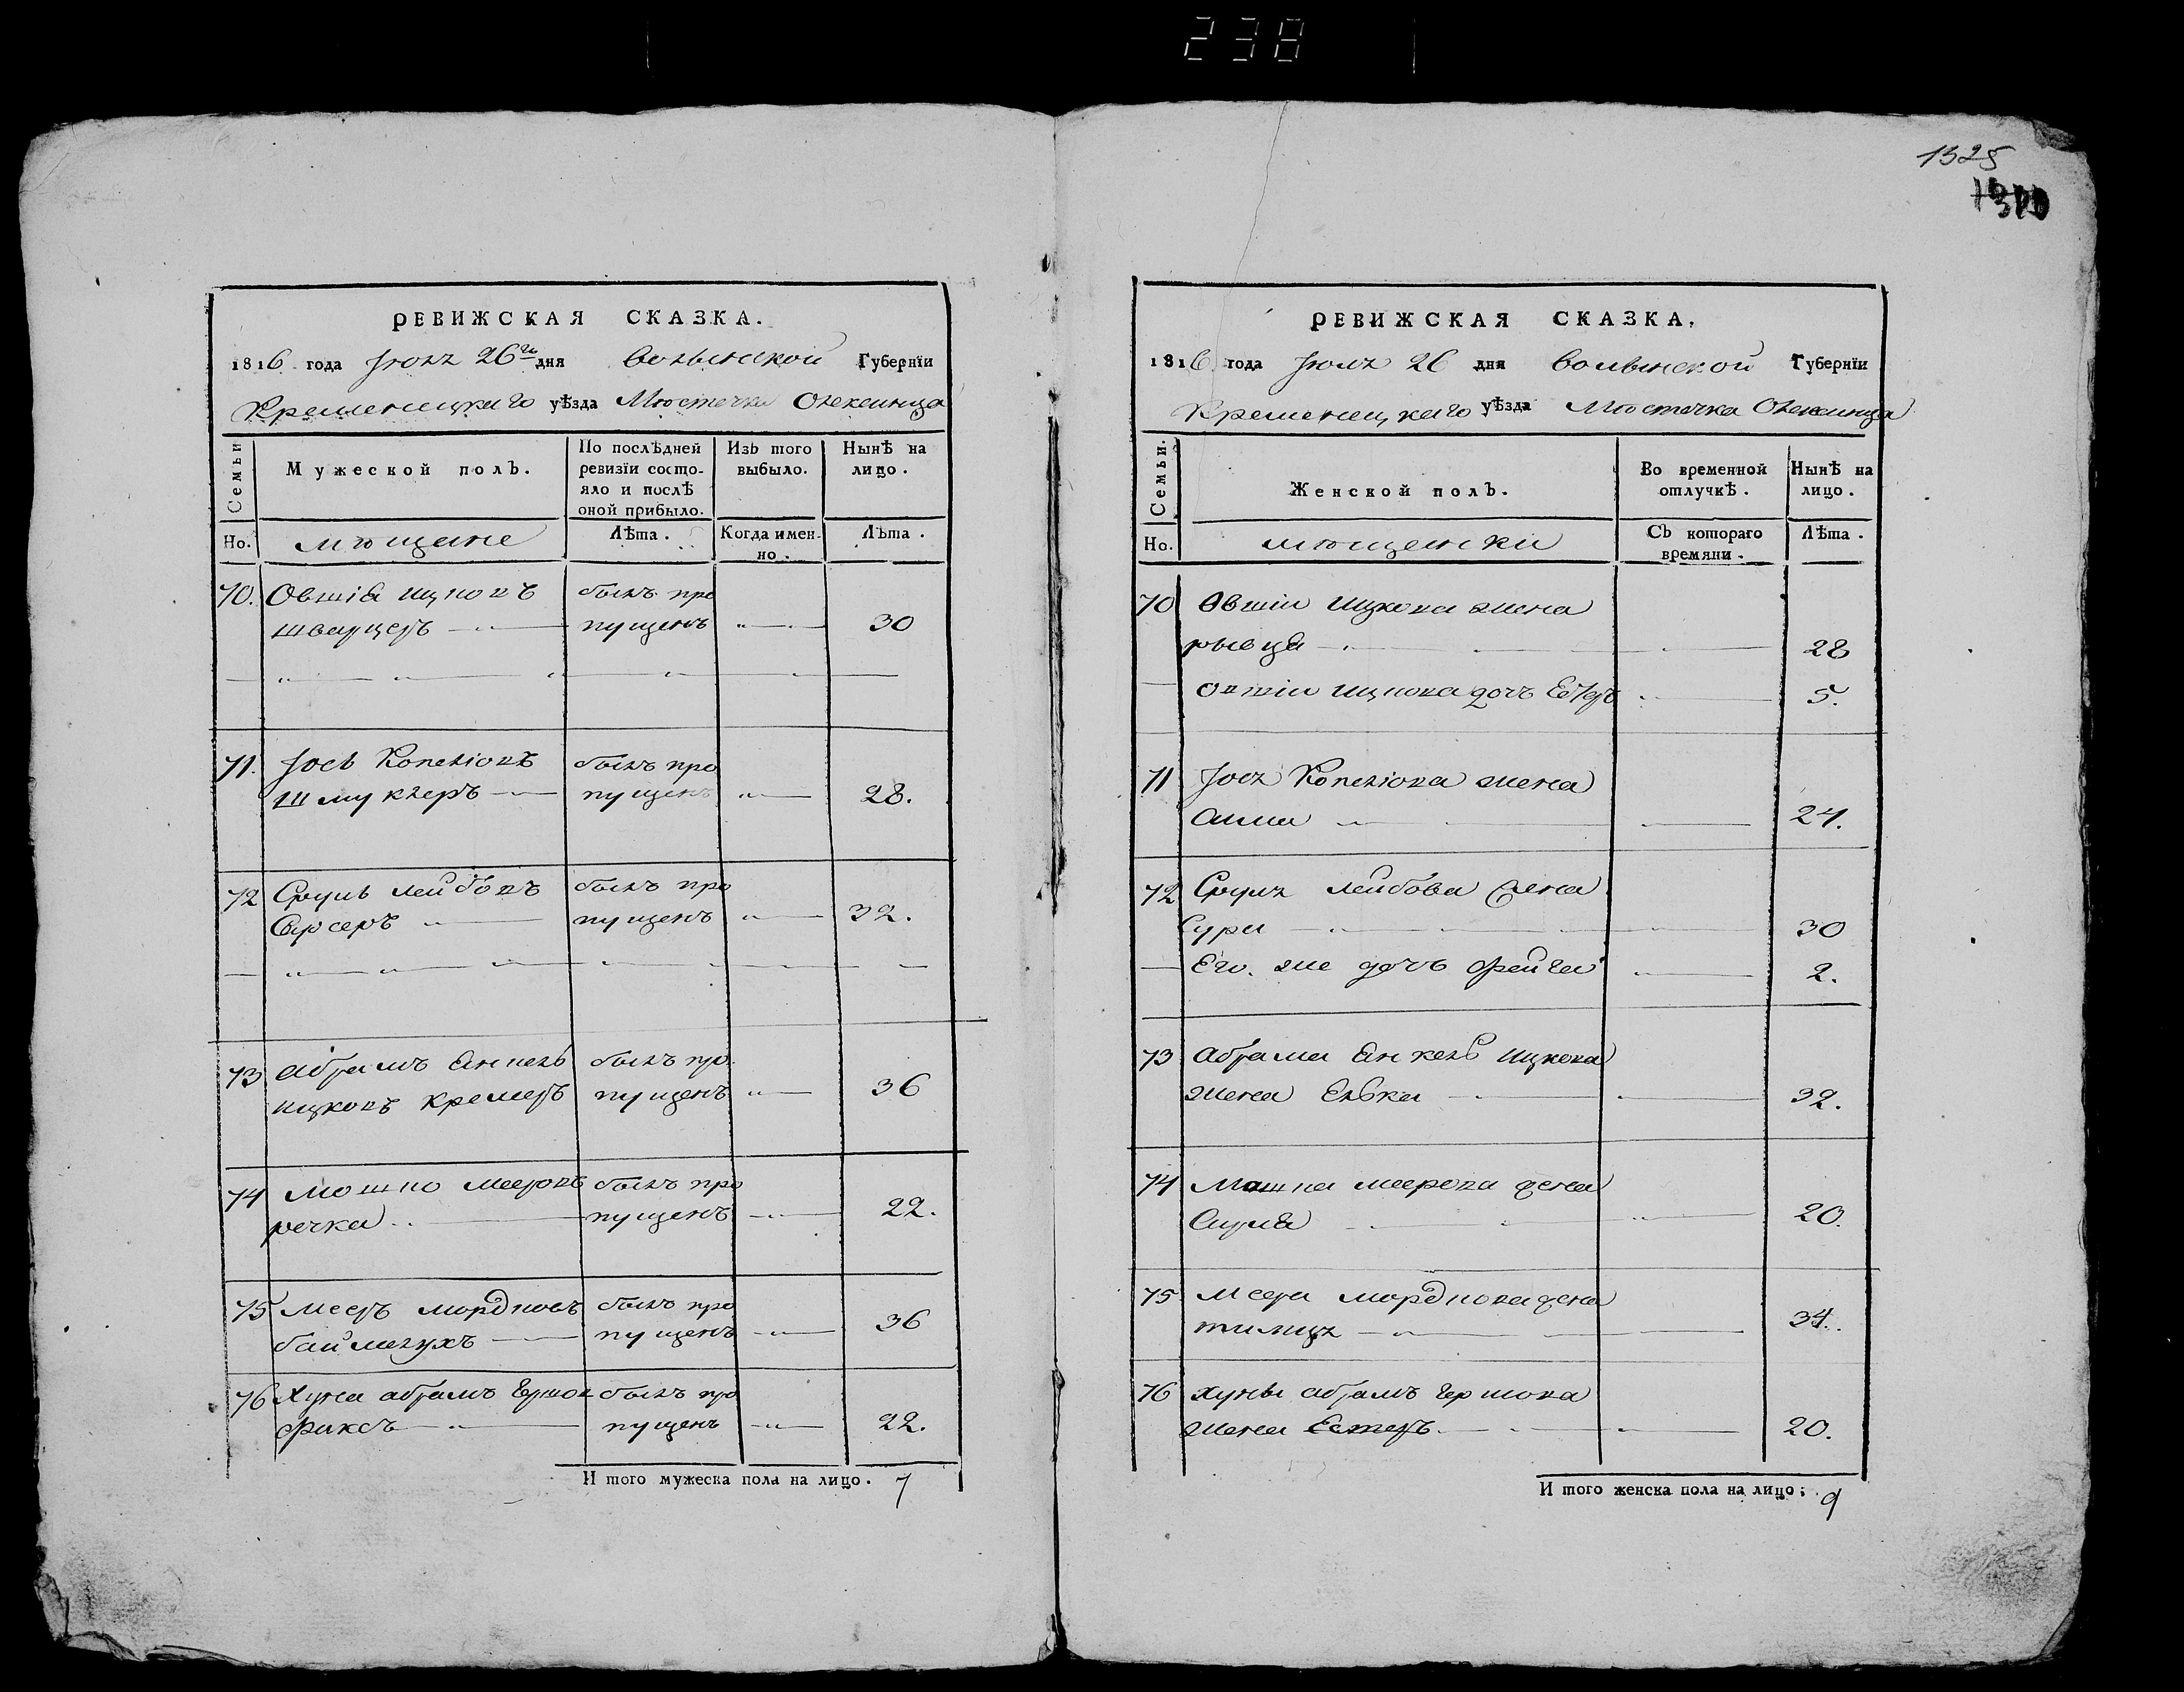 238
1325
РЕВИЖСКАЯ СКАЗКА.
1816 года Іюля 26го дня Волынской Губернїи
Кременецкаго уѣзда Мѣстечка Олексинца
Семьи
Мужеской полъ.
По послѣдней ревизїи состо-
яло и послѣ
оной прибыло.
Изъ того выбыло.
Нынѣ на лицо.
Но.
мѣщане
Лѣта.
Когда имен-
но.
Лѣта.
70. Овшія Ицковъ былъ про
Шварцеръ пущенъ 30
71. Іось Копелiовъ былъ про
Шмуклеръ пущенъ 28.
72 Сруль Лейбовъ былъ про
пущенъ 32.
73 Абрамъ Янкель былъ про
Ицковъ Кремеръ пущенъ 36
74 Мошко Мееровъ былъ про
речка пущенъ 22.
75 Мееръ Мордковъ былъ про
пущенъ 36
76 Хуна Абрамъ Гершов былъ про
Фиксъ пущенъ 22.
И того мужеска пола на лицо. 7
РЕВИЖСКАЯ СКАЗКА.
1816 года Іюля 26 дня Волынской Губернїи
Кременецкаго уѣзда Мѣстечка Олексинца
Семьи.
Женской полъ.
Во временной
отлучкѣ.
Нынѣ на
лицо.
Но.
мѣщанки
Съ котораго
времяни.
Лѣта.
70 Овшіи Ицкова жена
рывця 28
Овшіи Ицкова дочь 5.
71 Іося Копелiова жена
24.
72 Сруля Лейбова жена
Сура 30
Его же дочь Фейга 2.
73 Абрама Янкель Ицкова
жена Елька 32.
74 Мошка Меерова жена
20.
75 Меера Мордкова жена
34.
76 Хуны Абрамъ Гершова
жена Естеръ 20.
И того женска пола на лицо: 9